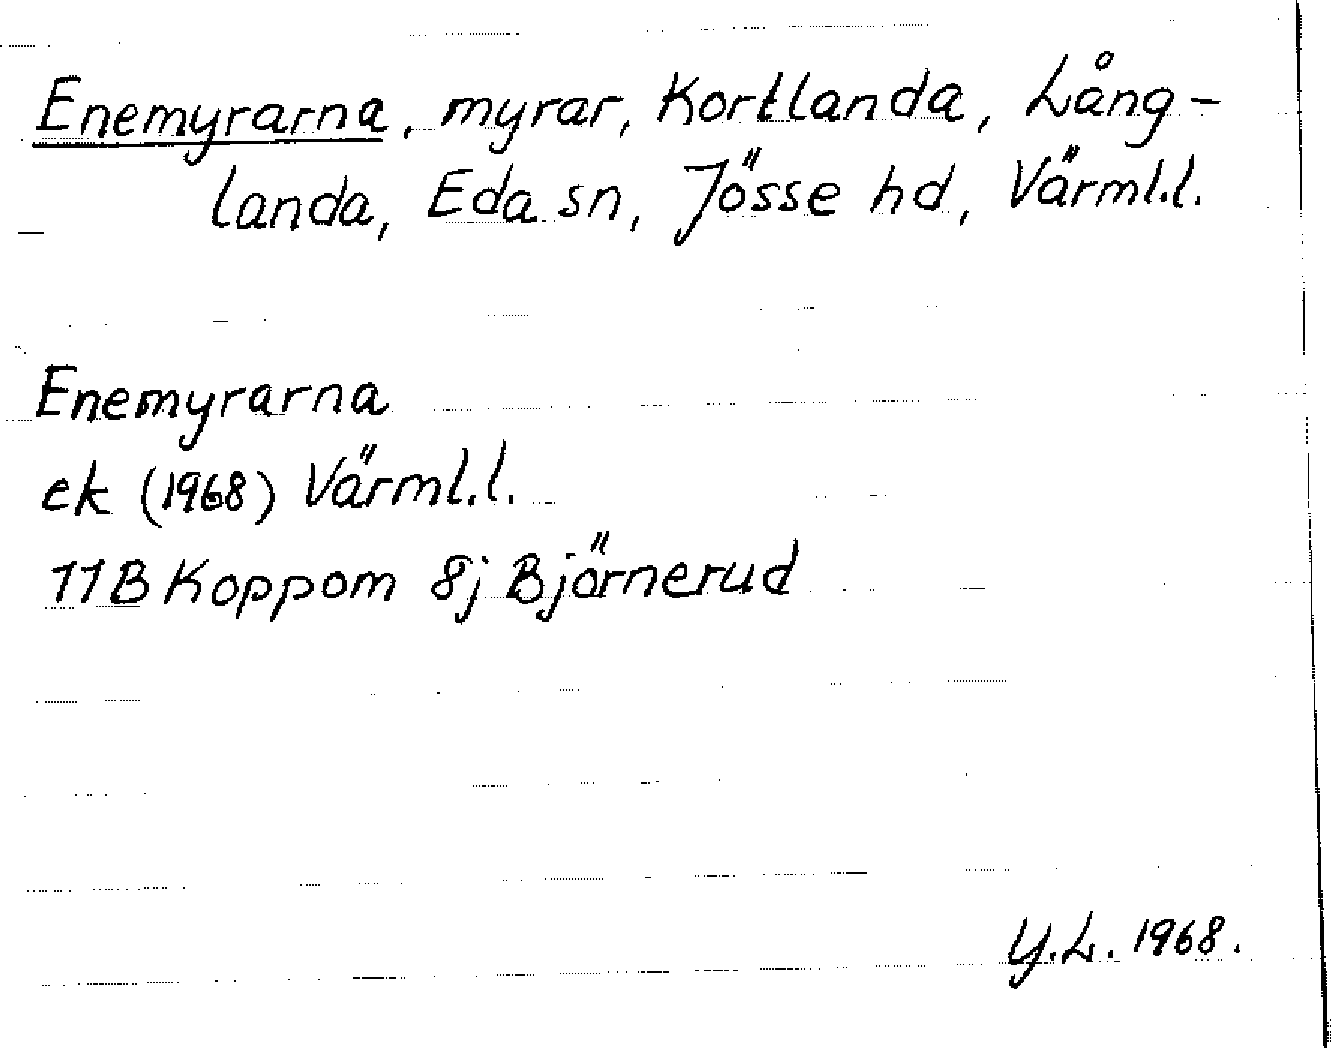 Enemyrarna, myrar, Kortlanda, Lång-
landa, Eda sn, Jösse hd, Värml.l.
Enemyrarna
ek (1968) Värml.l.
11B Koppom 8j Björnerud
Y.L. 1968.